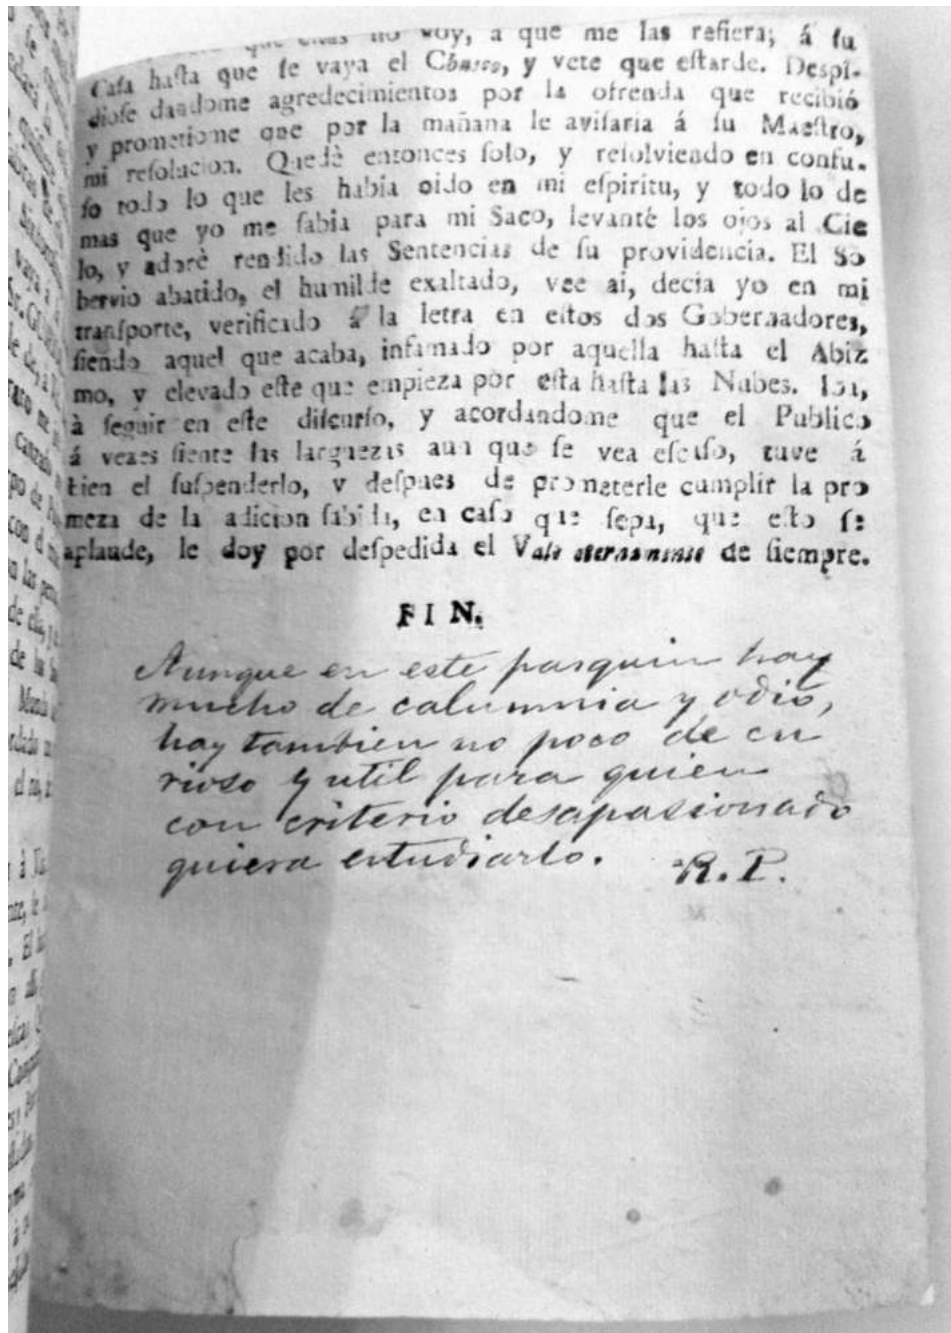 que estas no voy, a que me las refiera; á ſu
Caſa haſta que ſe vaya el Chusco, y vete que eſtarde. Deſpi-
dioſe dandome agredecimientos por la ofrenda que recibió
y prometiome que por la mañana le aviſaria á ſu Maeſtro,
mi reſolucion. Quedè entonces ſolo, y reſolviendo en confu-
ſo todo lo que les había oido en mi eſpiritu, y todo lo de
mas que yo me ſabia para mi Saco, levanté los ojos al Cie
lo, y adorè rendido las Sentencias de ſu providencia. El So
bervio abatido, el humilde exaltado, vee ai, decia yo en mi
tranſporte, verificado á la letra en eſtos dos Gobernadores,
ſiendo aquel que acaba, infamado por aquella haſta el Abiz
mo, y elevado eſte que empieza por eſta haſta las Nubes. Iba,
à ſeguir en eſte diſcurſo, y acordandome que el Publico
á vezes ſiente las larguezas aun que ſe vea eſcaſo, tuve á
bien el ſuſpenderlo, y deſpues de prometerle cumplir la pro
meza de la adicion ſabida, en caſo que ſepa, que eſto ſe
aplaude, le doy por deſpedida el Vale eternamente de ſiempre.
FIN.
Aunque en este pasquin hay
mucho de calumnia y odio,
hay tambien no poco de cu
rioso y util para quien
con criterio desapasionado
quiera estudiarlo.
R. P.